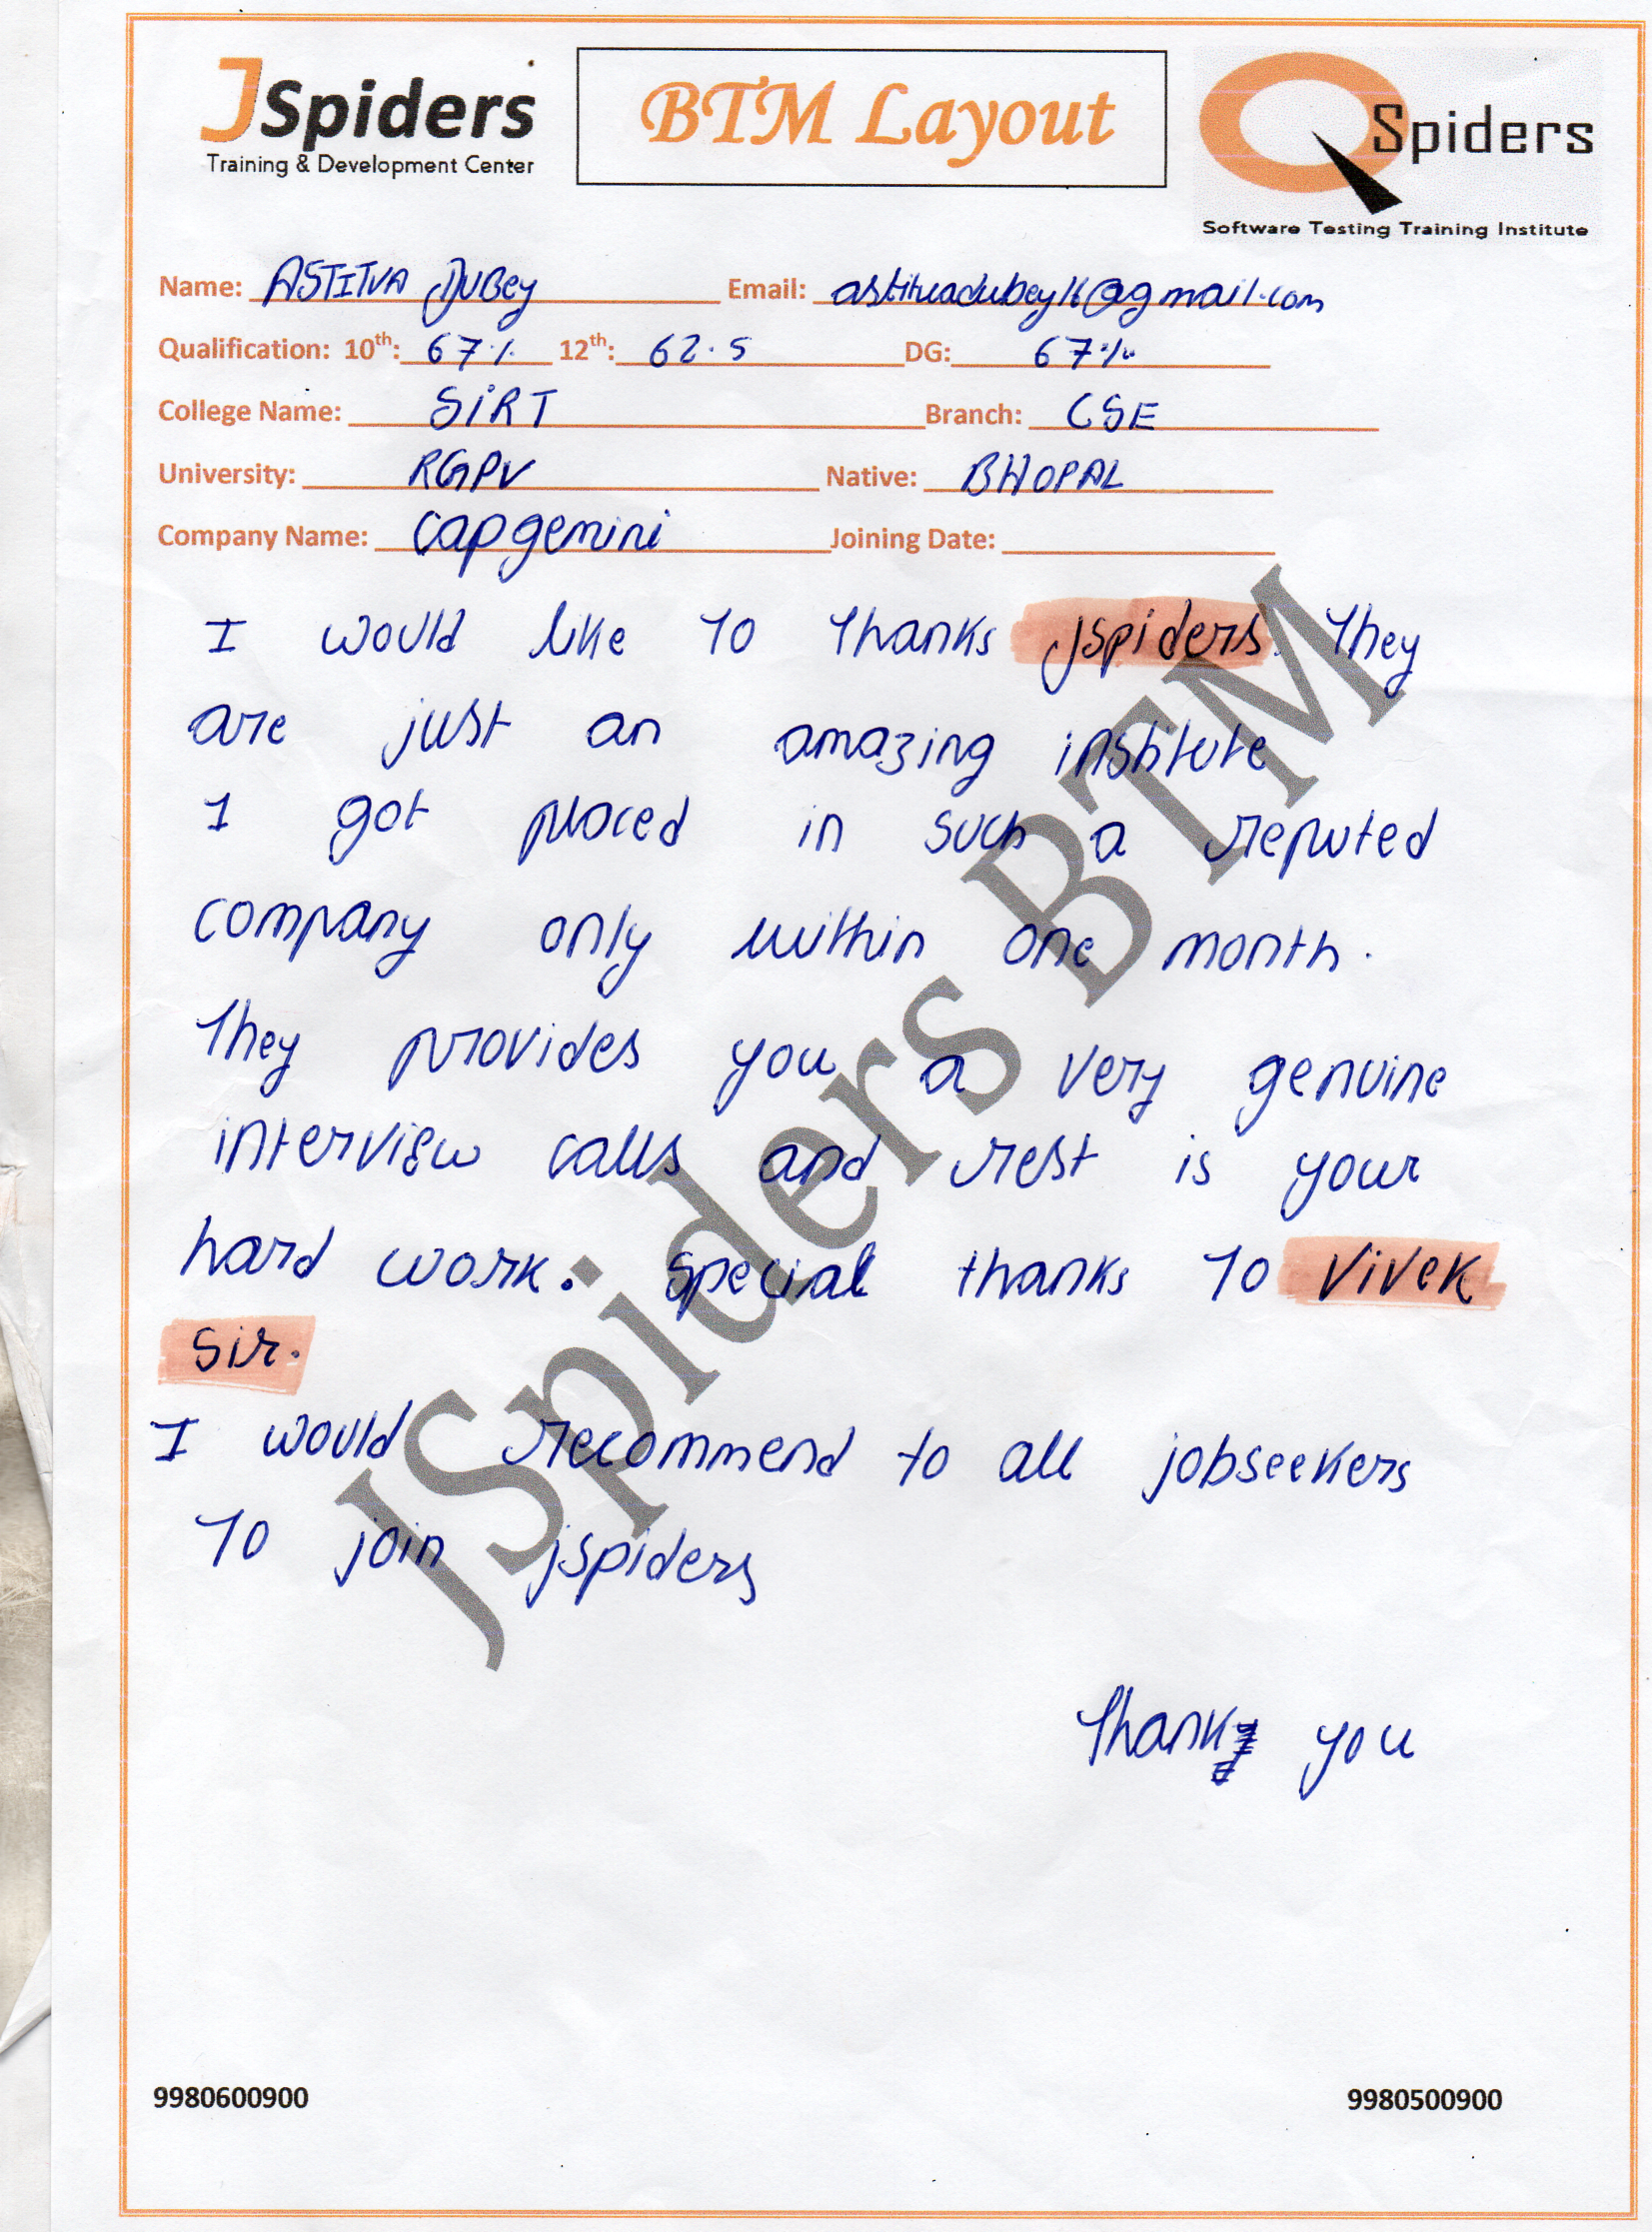 JSpiders
Training & Development Center
BTM Layout
QSpiders
Software Testing Training Institute
Name: ASTITVA DUBEY Email: astitvadubey16@gmail.com
Qualification: 10th: 67% 12th: 62.5 DG: 67%
College Name: SIRT Branch: CSE
University: RGPV Native: BHOPAL
Company Name: Capgemini Joining Date:
I would like To Thanks jspiders. They
are just an amazing institute
I got placed in such a reputed
company only within one month.
They provides you a very genuine
interview calls and rest is your
hard work. Special thanks To Vivek
Sir.
I would recommend to all jobseekers
To join jspiders
Thank you
JSpiders BTM
9980600900 9980500900